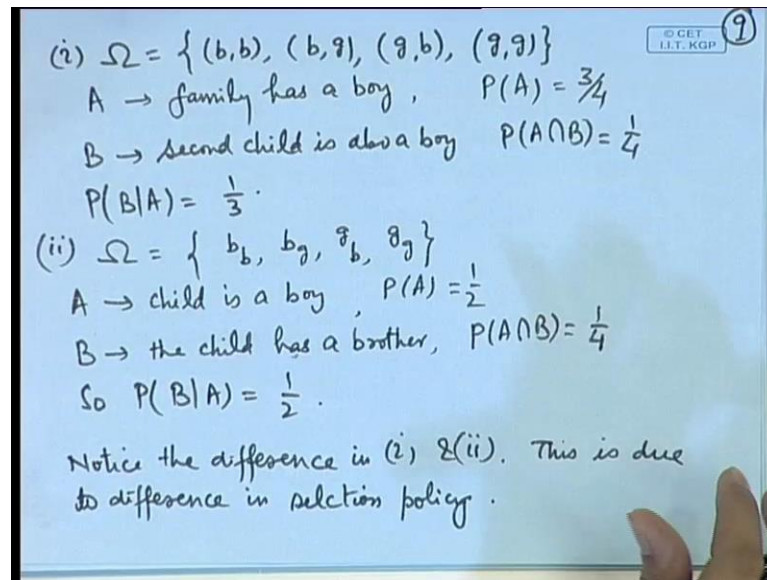 © CET
I.I.T. KGP
9
(i) Ω = { (b,b), (b,g), (g,b), (g,g)}
A → family has a boy, P(A) = 3/4
B → second child is also a boy P(A∩B) = 1/4
P(B|A) = 1/3.
(ii) Ω = { b_b, b_g, g_b, g_g}
A → child is a boy, P(A) = 1/2
B → the child has a brother, P(A∩B) = 1/4
So P(B|A) = 1/2.
Notice the difference in (i) & (ii). This is due
to difference in selction policy.